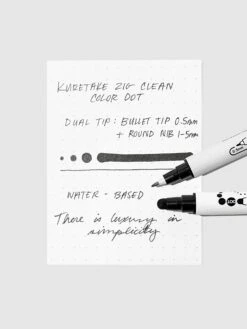 KURETAKE ZIG CLEAN
COLOR DOT
DUAL TIP: BULLET TIP 0.5mm
+ ROUND NIB 1-5mm
WATER-BASED
There is luxury in
simplicity
DOT